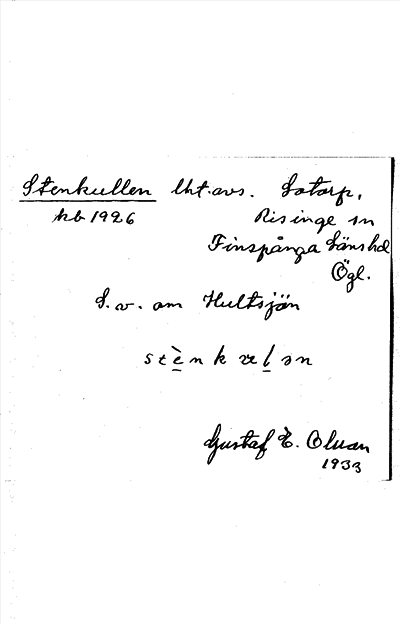 Stenkullen lht. avs. Sotorp,
kb 1926 Risinge sn
Finspånga läns hd
Ögl.
S. v. om Hultsjön
stènkɐlən
Gustaf E. Olsson
1933